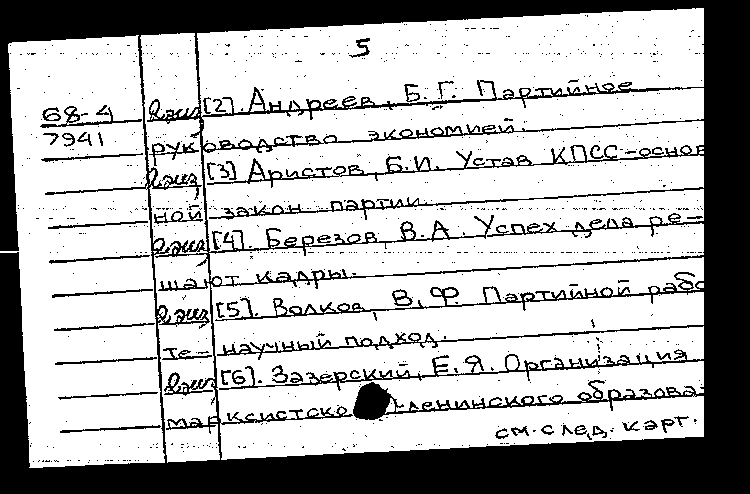 5
68-4
7941
2 экз [2]. Андреев, Б. Г. Партийное
руководство экономией.
2 экз [3] Аристов, Б.И. Устав КПСС - основ
ной закон партии.
2 экз [4]. Березов, В.А. Успех дела ре-
шают кадры.
2 экз [5]. Волков, В. Ф. Партийной рабо
те - научный подход.
2 экз [6]. Зазерский, Е.Я. Организация
марксистско-ленинского образова-
см. след. карт.